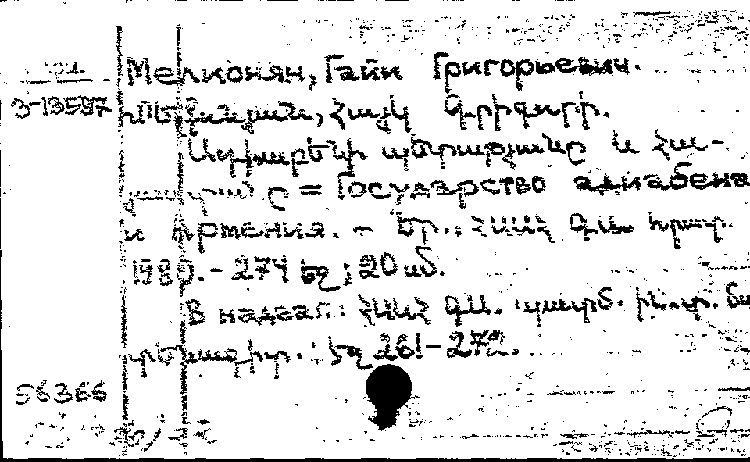 Меликонян, Гайк Григорьевич.
3-13587 Մելքոնյան, Հայկ Գրիգորի.
Ադիաբենի պետությունը և Հա-
յաստանը = Государство Адиабена
и Армения. - Եր.: ՀՍՍՀ ԳԱ հրատ.
1980. - 274 էջ; 20 սմ.
В надзаг.: ՀՍՍՀ ԳԱ. պատմ. ին-տ.
էջ 261-272.
56366